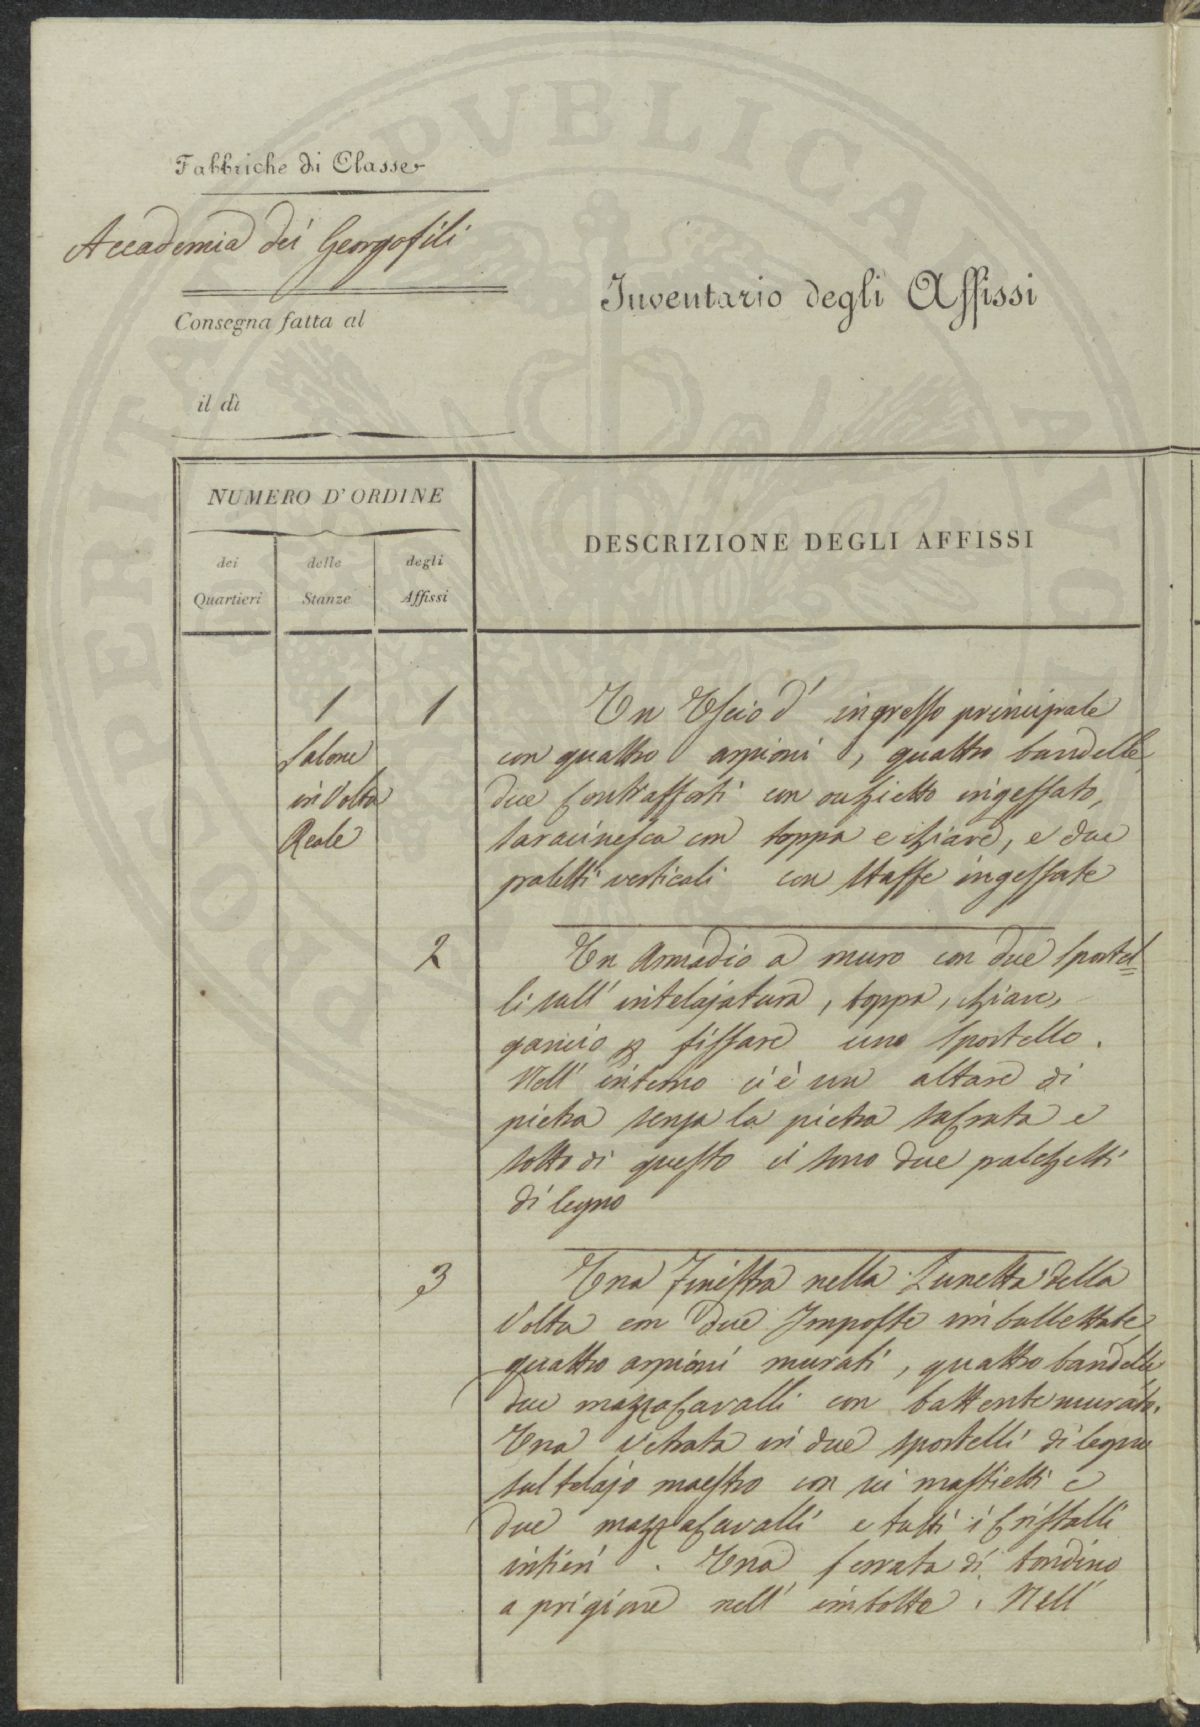 Fabbriche di Classe
Accademia dei Georgofili
Inventario degli Affissi
Consegna fatta al
il dì
NUMERO D'ORDINE
dei Quartieri
delle Stanze
degli Affissi
DESCRIZIONE DEGLI AFFISSI
1 Salone in Volta Reale
1
Un Uscio d' ingresso principale
con quattro arpioni, quattro bandelle,
due contrafforti con occhietto ingessato,
saracinesca con toppa e chiave, e due
paletti verticali con staffe ingessate
2
Un Armadio a muro con due sportel=
li sull' intelajatura, toppa, chiave,
gancio p fissare uno sportello.
Nell' interno ci è un altare di
pietra senza la pietra sacrata e
sotto di questo ci sono due palchetti
di legno
3
Una Finestra nella Lunetta della
Volta con due Imposte imbullettate
quattro arpioni murati, quattro bandelle
due mazzacavalli con battente murato.
Una vetrata in due sportelli di legno
sul telajo maestro con sei mastietti e
due mazzacavalli e tutti i cristalli
intieri. Una ferrata di tondino
a prigione nell' imbotte. Nell'
PROSPERITATI PVBLICAE AVGENDAE